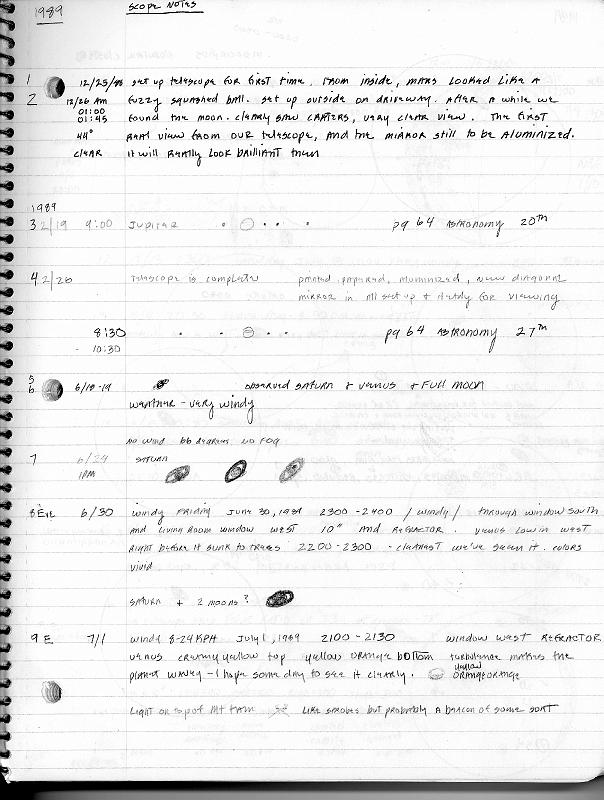 1989 SCOPE NOTES
1 12/25/88 set up telescope for first time. From inside, mars looked like a
2 12/26 AM fuzzy squashed ball. set up outside on driveway. After a while we
01:00
01:45 found the moon. clearly saw craters, very clear view. The first
44° real view from our telescope, and the mirror still to be aluminized.
clear it will really look brilliant then
1989
3 2/19 9:00 Jupiter pg 64 ASTRONOMY 20th
4 2/26 Telescope is complete painted, repaired, aluminized, new diagonal
mirror in all set up & ready for viewing
8:30 pg 64 ASTRONOMY 27th
- 10:30
5
6 6/18-19 observed saturn & venus & full moon
weather - very windy
no wind 66 degrees no fog
7 6/24 saturn
1 pm
8 Eve 6/30 windy Friday June 30, 1989 2300 - 2400 / windy / through window south
and living room window west 10" and refractor. venus low in west
right before it sunk to trees 2200 - 2300 - clearest we've seen it. colors
vivid
saturn + 2 moons?
9 E 7/1 wind 8-24 KPH July 1, 1989 2100 - 2130 window west refractor
venus creamy yellow top yellow orange bottom turbulence makes the
planet wavey - I hope some day to see it clearly. yellow
orange orange
Light on top of Mt Tam like strobes but probably a beacon of some sort